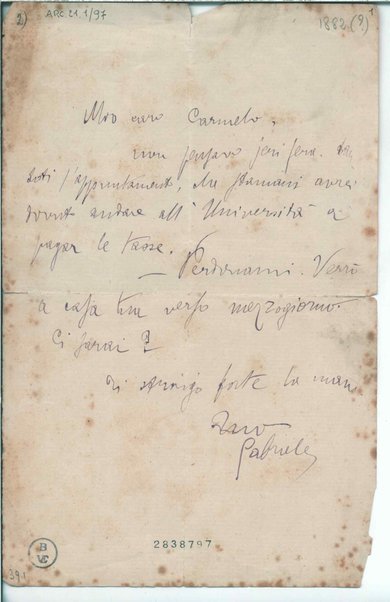 2) ARC.21.1/97 1882(?)
Mio caro Carmelo,
non pensavo jeri sera, dan
doti l'appuntamento, che stamani avrei
dovuto andare all'Università a
pagar le tasse.
— Perdonami. Verrò
a casa tua verso mezzogiorno.
Ci sarai?
Ti stringo forte la mano
Tuo
Gabriele
B
VE
2838797
391